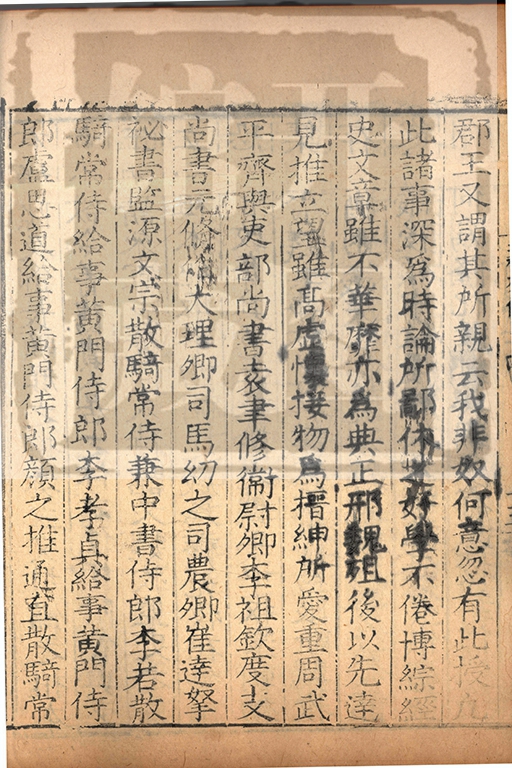 郡王又謂其所親云我非奴何意忽有此授凡
此諸事深爲時論所鄙休之好學不倦博綜經
史文章雖不華靡亦爲典正邢魏殂後以先達
見推位望雖高虛懷接物爲搢紳所愛重周武
平齊與吏部尚書袁聿修衛尉卿李祖欽度支
尚書元脩伯大理卿司馬幼之司農卿崔達拏
祕書監源文宗散騎常侍兼中書侍郎李若散
騎常侍給事黃門侍郎李孝貞給事黃門侍
郎盧思道給事黃門侍郎顏之推通直散騎常